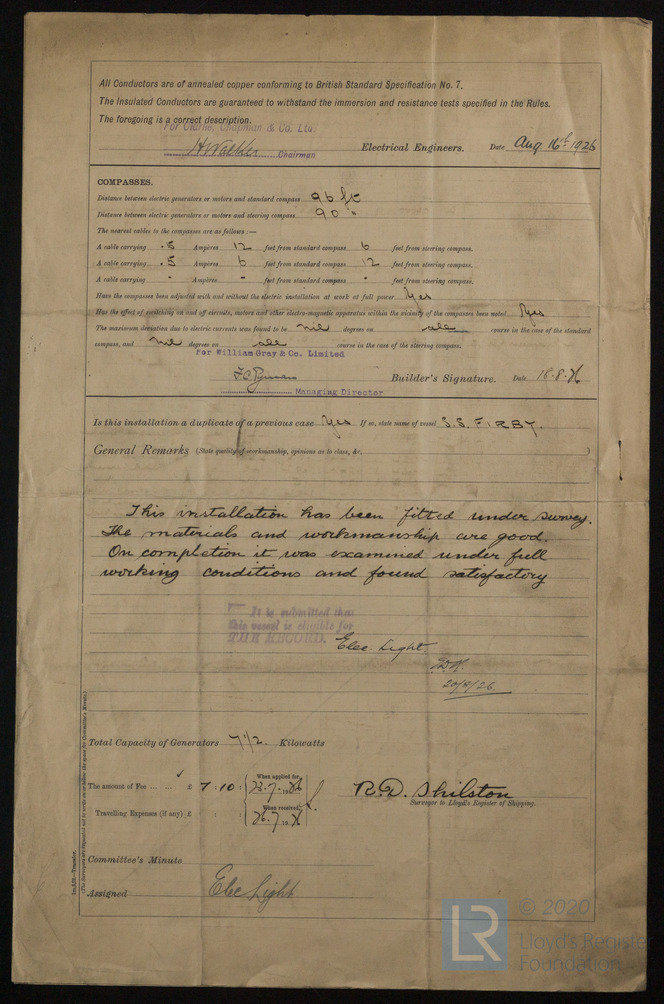 All Conductors are of annealed copper conforming to British Standard Specification No. 7.
The Insulated Conductors are guaranteed to withstand the immersion and resistance tests specified in the Rules.
The foregoing is a correct description.
For Clarke, Chapman & Co. Ltd.
HWalker Chairman Electrical Engineers. Date Aug 16th 1926
COMPASSES.
Distance between electric generators or motors and standard compass 96 ft
Distance between electric generators or motors and steering compass 90 "
The nearest cables to the compasses are as follows :—
A cable carrying .5 Ampères 12 feet from standard compass 6 feet from steering compass.
A cable carrying .5 Ampères 6 feet from standard compass 12 feet from steering compass.
A cable carrying - Ampères - feet from standard compass - feet from steering compass.
Have the compasses been adjusted with and without the electric installation at work at full power Yes
Has the effect of switching on and off circuits, motors and other electro-magnetic apparatus within the vicinity of the compasses been noted Yes
The maximum deviation due to electric currents was found to be nil degrees on all course in the case of the standard
compass, and nil degrees on all course in the case of the steering compass.
For William Gray & Co. Limited
Managing Director Builder's Signature. Date 18.8.26
Is this installation a duplicate of a previous case Yes If so, state name of vessel S.S. FIRBY.
General Remarks (State quality of workmanship, opinions as to class, &c. )
This installation has been fitted under survey.
The materials and workmanship are good.
On completion it was examined under full
working conditions and found satisfactory
It is submitted that
this vessel is eligible for
THE RECORD.
Elec Light.
20/8/26.
Total Capacity of Generators 7 1/2 Kilowatts
The amount of Fee ... ... £ 7 : 10 : When applied for, 23.7.1926
R.D. Shilston
Surveyor to Lloyd's Register of Shipping.
Travelling Expenses (if any) £ : : When received, 26.7.1926
Committee's Minute
Assigned Elec Light
(The Surveyors are requested not to write on or below the space for Committee's Minute.)
© 2020
LR Lloyd's Register
Foundation